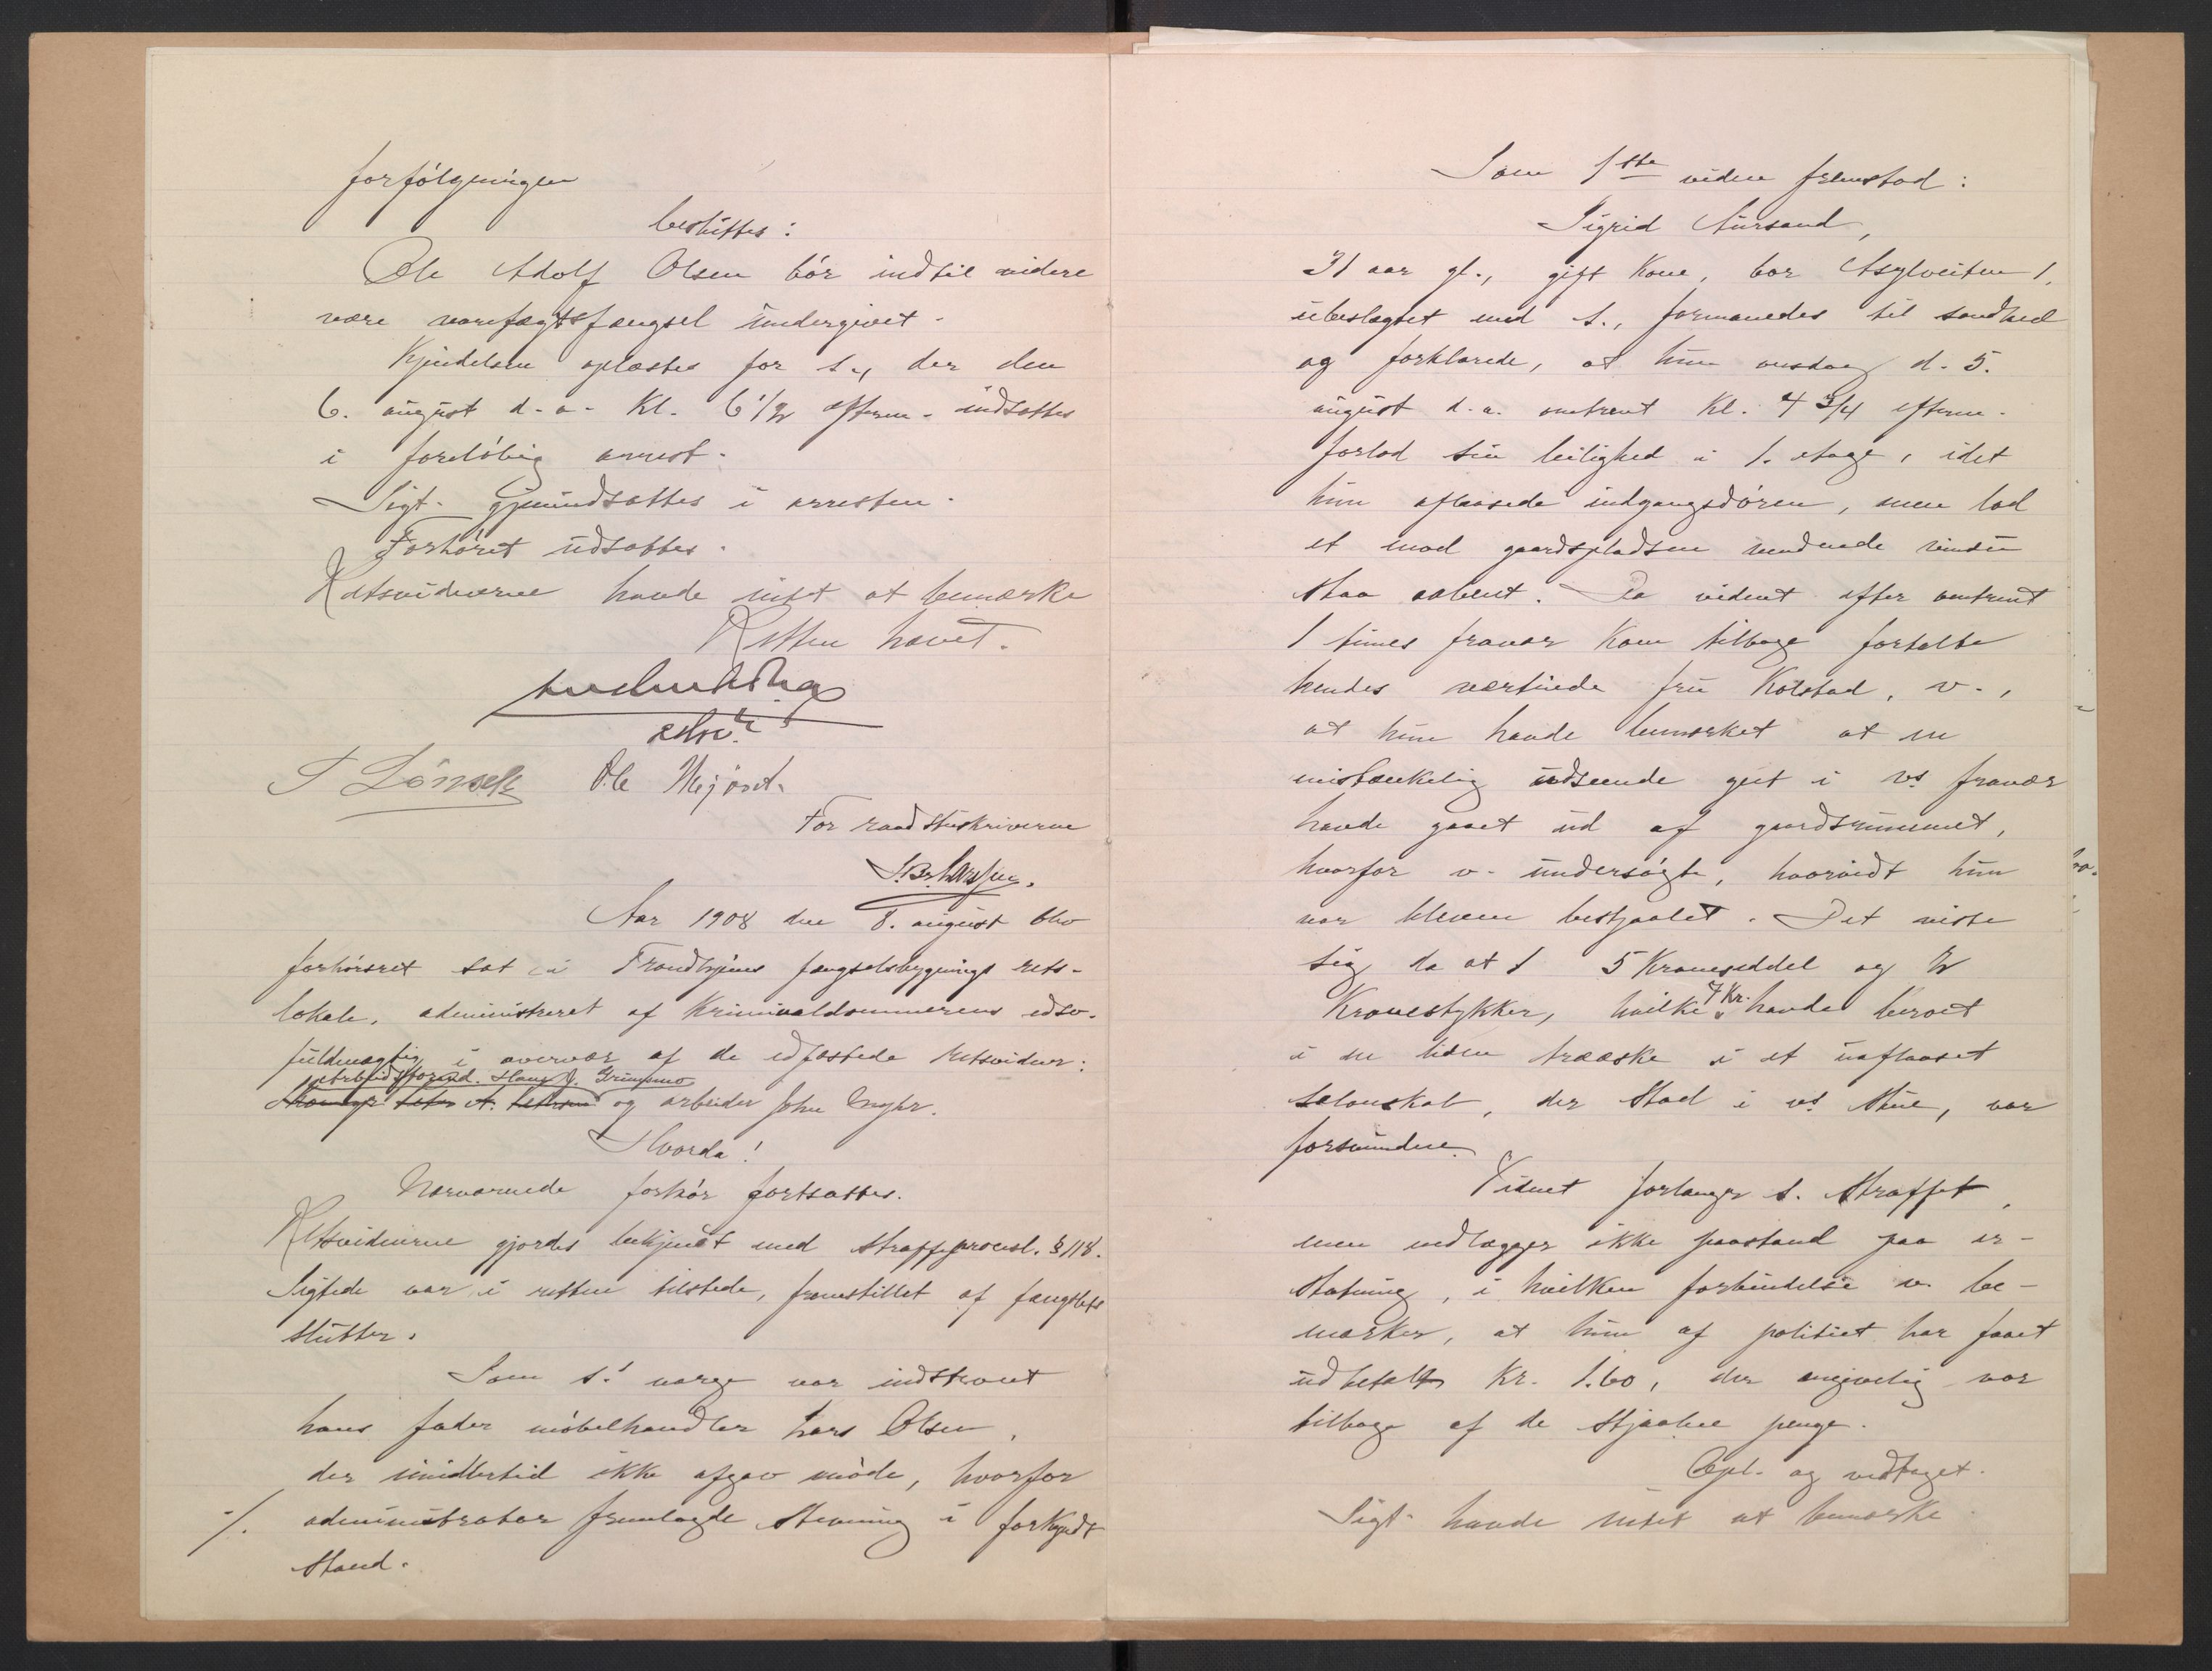 forfölgningen
besluttes:
Ole Adolf Olsen bör indtil videre
være varetægtsfængsel undergivet.
Kjendelsen oplæstes for s., der den
6. august d. a. Kl. 6 1/2 efterm. indsattes
i foreløbig arrest.
Sigt. gjenindsattes i arresten.
Forhöret udsattes.
Retsvidnerne havde intet at bemærke
Retten hævet.
edsv.
Ole
For raadstuskriverne
Aar 1908 den 8. august blev
forhörsret sat i Trondhjems fængselsbygnings rets-
lokale, administreret af Kriminaldommerens edsv.
fuldmægtig i overvær af de edfæstede retsvidner:
arbeidsformd. Hans J. Grimsmo
og arbeider John Myhr.
Hvorda!
Nærværende forhör fortsattes.
Retsvidnerne gjordes bekjendt med straffeprocesl. § 118.
Sigtede var i retten tilstede, fremstillet af fængslets
slutter.
Som s! værge var indstevnt
hans fader möbelhandler Lars Olsen,
der imidlertid ikke afgav möde, hvorfor
./. administrator fremlagde stevning i forkyndt
stand.
Som 1ste vidne fremstod:
Sigrid Aursand,
31 aar gl., gift Kone, bor Asylveiten 1,
ubeslægtet med s., formanedes til sandhed
og forklarede, at hun onsdag d. 5.
august d. a. omtrent Kl. 4 3/4 efterm.
forlod sin leilighed i 1. etage, idet
hun aflaasede indgangsdören, men lod
et mod gaardspladsen vendende vindu
staa aabent. Da vidnet efter omtrent
1 times fravær kom tilbage fortalte
hendes værtinde fru Kolstad, v.,
at hun havde bemærket at en
mistænkelig udseende gut i vs fravær
havde gaaet ud af gaardsrummet,
hvorfor v. undersögte, hvorvidt hun
var bleven bestjaalet. Det viste
sig da at 1 5 Kroneseddel og 2
Kronestykker, hvilke 7 Kr. havde beroet
i en liden trææske i et uaflaaset
salonskab, der stod i vs stue, var
forsvundne.
Vidnet forlanger s. straffet,
men nedlægger ikke paastand paa er-
statning, i hvilken forbindelse v. be-
mærker, at hun af politiet har faaet
udbetalt Kr. 1.60, der angivelig var
tilbage af de stjaalne penge.
Opl. og vedtaget.
Sigt. havde intet at bemærke